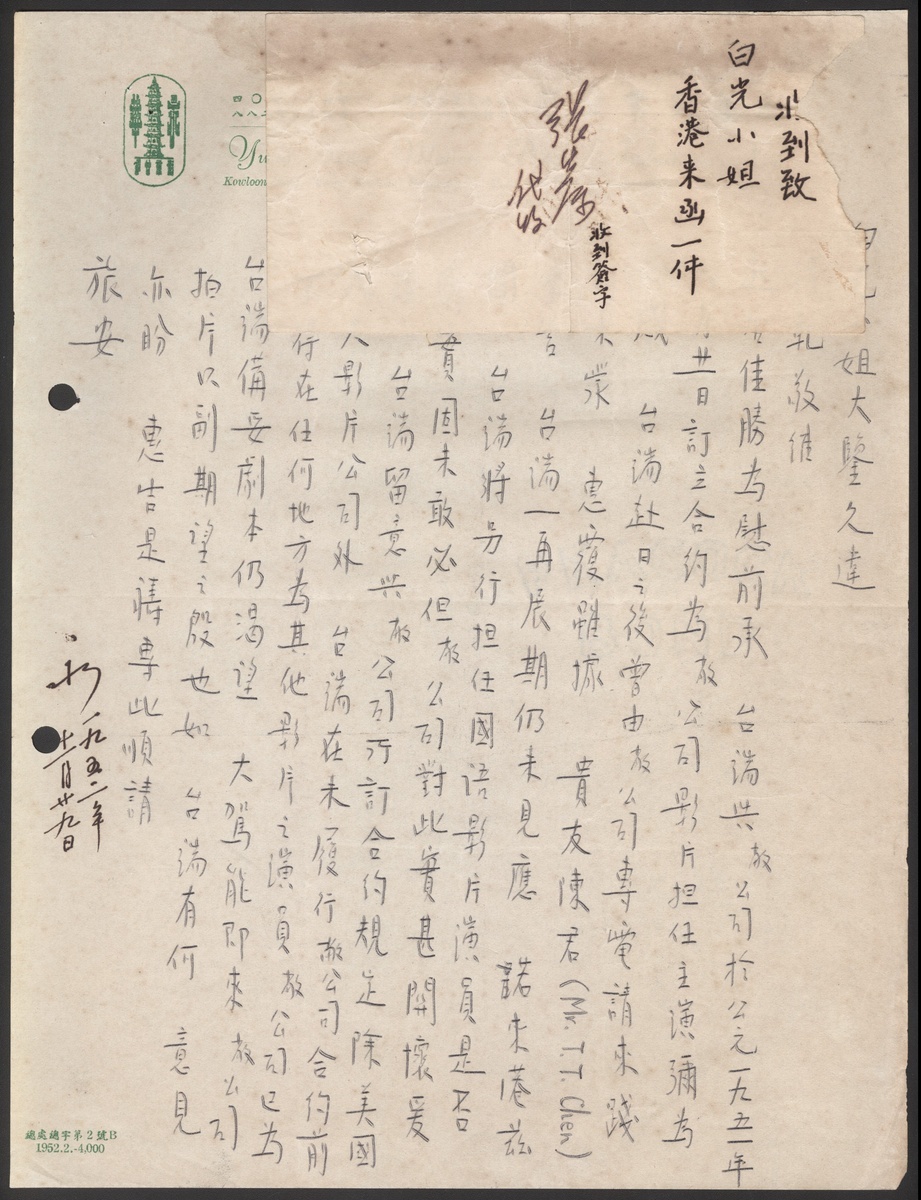 到致
白光小姐
香港来函一件
收到簽字
代收
四〇
八八
Kowloon
姐大鑒久違
敬維
佳勝為慰前承 台端與敝公司於公元一九五一年
廿日訂立合約為敝公司影片担任主演彌為
台端赴日之後曾由敝公司專電請來踐
蒙 惠覆雖據 貴友陳君(Mr. T.T. Chen)
台端一再展期仍未見應 諾來港茲
台端將另行担任國語影片演員是否
實固未敢必但敝公司對此實甚關懷爰
台端留意與敝公司所訂合約規定除美國
人影片公司外 台端在未履行敝公司合約前
行在任何地方為其他影片之演員敝公司已為
台端備妥劇本仍渴望 大駕能即來敝公司
拍片以副期望之殷也如 台端有何 意見
亦盼 惠告是禱專此順請
旅安
一九五二年
十一月廿九日
總處總字第2號B
1952.2.-4,000